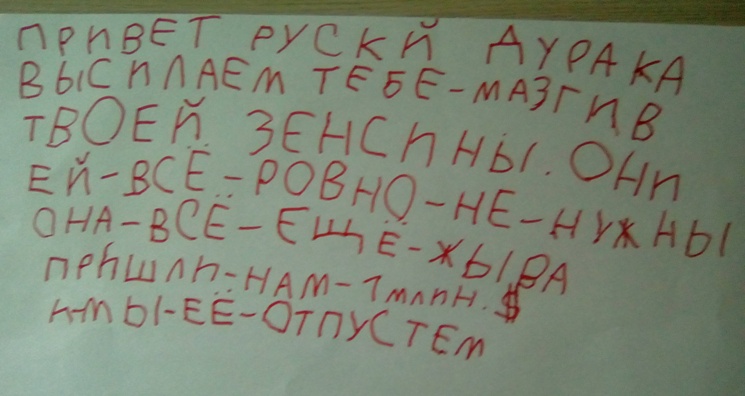 ПРИВЕТ РУСКЙ ДУРАКА
ВЫСИЛАЕМ ТЕБЕ-МАЗГИВ
ТВОЕЙ ЗЕНСИНЫ. ОНИ
ЕЙ-ВСЁ-РОВНО-НЕ-НУЖНЫ
ОНА-ВСЁ-ЕЩЁ-ЖЫВА
ПРИШЛИ-НАМ-1 МЛИН.$
И-МЫ-ЕЁ-ОТПУСТЕМ